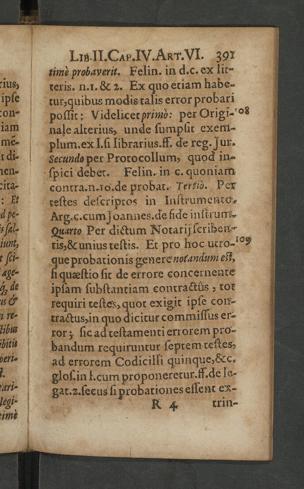 LIB. II. CAP. IV. ART. VI. 391
timè probaverit. Felin. in d.c. ex lit-
teris. n.1. & 2. Ex quo etiam habe-
tur, quibus modis talis error probari
possit: Videlicet primò: per Origi-
108
nale alterius, unde sumpsit exem-
plum. ex l. si librarius. ff. de reg. jur.
Secundo per Protocollum, quod in-
spici debet. Felin. in c. quoniam
contra. n. 10. de probat. Tertiò. Per
testes descriptos in Instrumento.
Arg. c. cum Joannes. de fide instrum.
Quarto Per dictum Notarij scriben-
tis, & unius testis. Et pro hoc utro-
109
que probationis genere notandum est,
si quæstio sit de errore concernente
ipsam substantiam contractûs, tot
requiri testes, quot exigit ipse con-
tractus, in quo dicitur commissus er-
ror; sic ad testamenti errorem pro-
bandum requiruntur septem testes,
ad errorem Codicilli quinque, &c.
glos. in l. cum proponeretur. ff. de le-
gat. 2. secus si probationes essent ex-
R 4 trin-